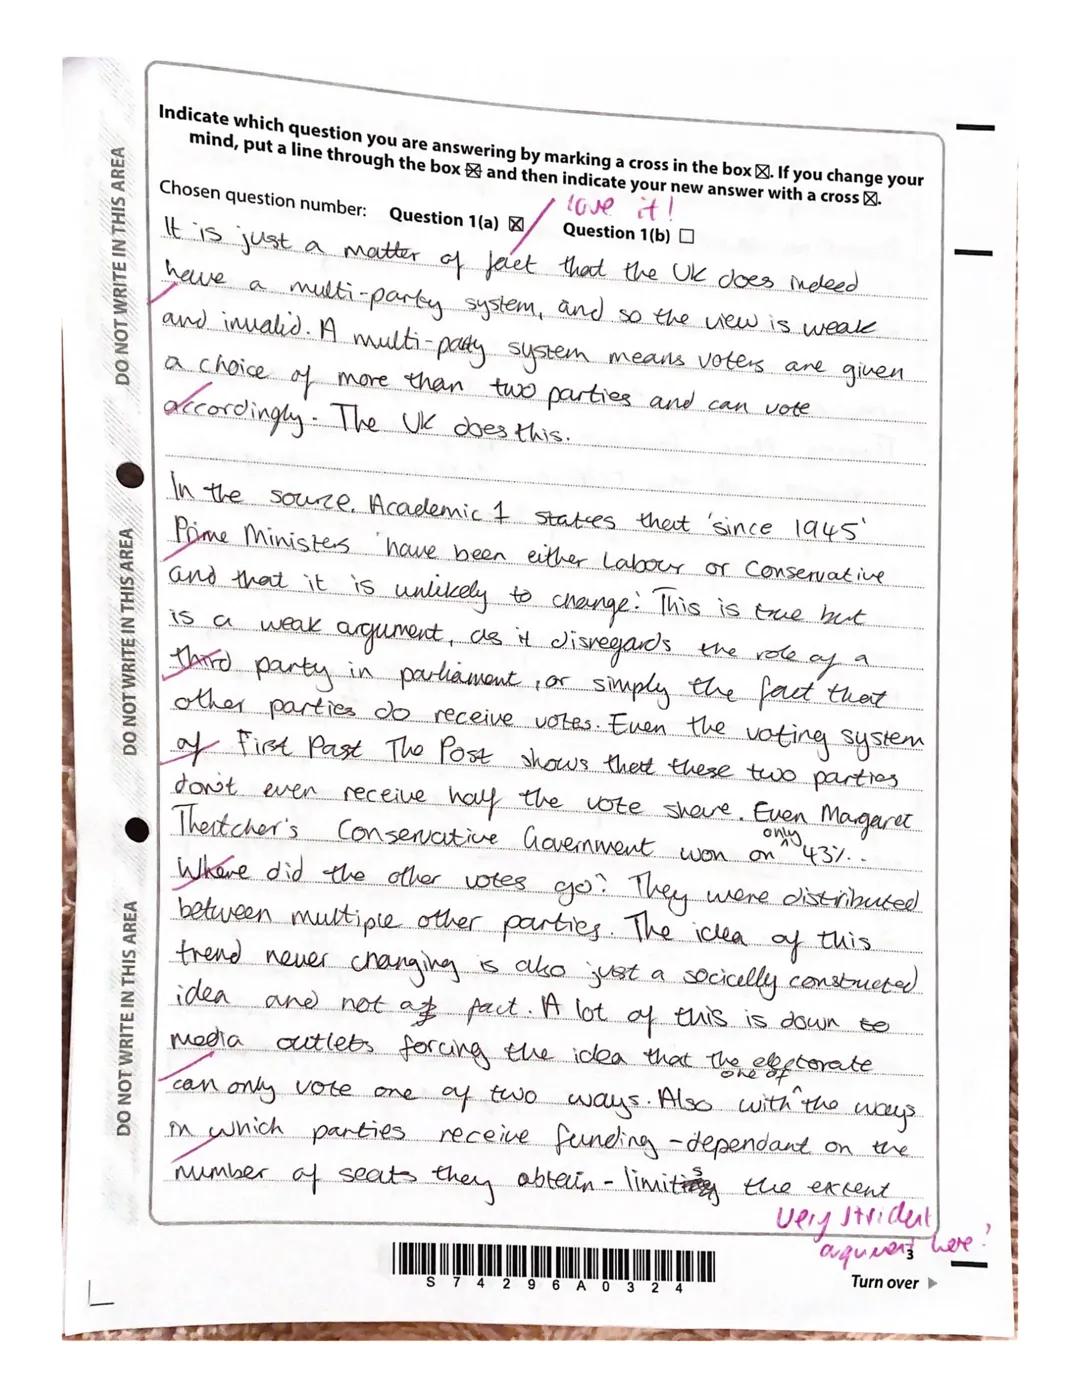 Indicate which question you are answering by marking a cross in the box ☒. If you change your
mind, put a line through the box and then indicate your new answer with a cross ☒.
love it!
Chosen question number: Question 1(a) ☒ Question 1(b) ☐
It is just a matter of fact that the UK does indeed
have a multi-party system, and so the view is weak
and invalid. A multi-party system means voters are given
a choice of more than two parties and can vote
accordingly. The UK does this.
In the source, Academic 1 states that 'since 1945'
Prime Ministers 'have been either Labour or Conservative
and that it is unlikely to change.' This is true but
is a weak argument, as it disregards the role of a
third party in parliament, or simply the fact that
other parties do receive votes. Even the voting system
of First Past The Post shows that these two parties
don't even receive half the vote share. Even Margaret
Thatcher's Conservative Government won on only 43%.
Where did the other votes go? They were distributed
between multiple other parties. The idea of this
trend never changing is also just a socially constructed
idea and not a fact. A lot of this is down to
media outlets forcing the idea that the electorate
can only vote one of two ways. Also with one of the ways
in which parties receive funding - dependant on the
number of seats they obtain - limits the extent
Very strident
argument here!
3
S74296A0324
Turn over
DO NOT WRITE IN THIS AREA
DO NOT WRITE IN THIS AREA
DO NOT WRITE IN THIS AREA